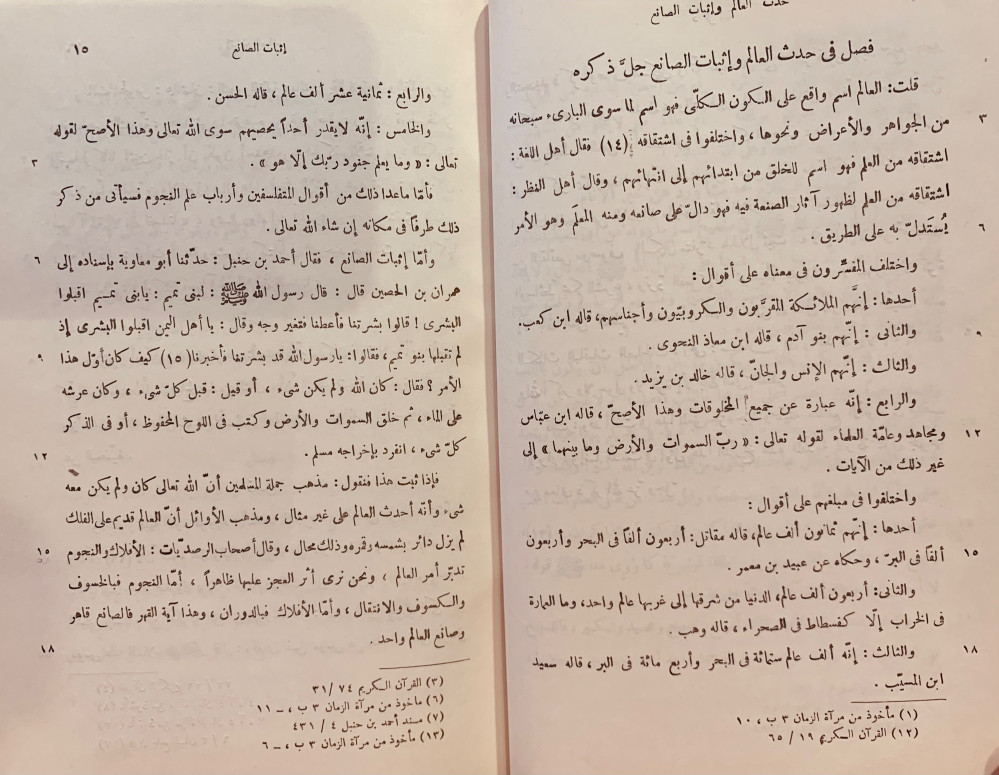 حدث العالم وإثبات الصانع
فصل فى حدث العالم وإثبات الصانع جلَّ ذكره
قلت: العالم اسم واقع على الكون الكلّى فهو اسم لما سوى البارىء سبحانه
من الجواهر والأعراض ونحوها ، واختلفوا فى اشتقاقه (١٤) فقال أهل اللغة : ٣
اشتقاقه من العلم فهو اسم للخلق من ابتدائهم إلى انتهائهم ، وقال أهل النظر :
اشتقاقه من العلم لظهور آثار الصنعة فيه فهو دالّ على صانعه ومنه المعلَم وهو الأمر
يُستَدلّ به على الطريق . ٦
واختلف المفسّرون فى معناه على أقوال :
أحدها : إنّهم الملائكة المقرّبون والكروبيّون وأجناسهم، قاله ابن كعب.
والثانى : إنّهم بنو آدم ، قاله ابن معاذ النحوى . ٩
والثالث : إنّهم الإنس والجانّ ، قاله خالد بن يزيد .
والرابع : إنّه عبارة عن جميع المخلوقات وهذا الأصحّ ، قاله ابن عبّاس
ومجاهد وعامّة العلماء لقوله تعالى : « ربّ السموات والأرض وما بينهما » إلى ١٢
غير ذلك من الآيات .
واختلفوا فى مبلغهم على أقوال :
أحدها : إنّهم ثمانون ألف عالم، قاله مقاتل: أربعون ألفاً فى البحر وأربعون
ألفاً فى البرّ ، وحكاه عن عبيد بن معمر . ١٥
والثانى: أربعون ألف عالم، الدنيا من شرقها إلى غربها عالم واحد، وما العمارة
فى الخراب إلّا كفسطاط فى الصحراء ، قاله وهب .
والثالث : إنّه ألف عالم ستمائة فى البحر وأربع مائة فى البر ، قاله سعيد ١٨
ابن المسيّب .
(١) مأخوذ من مرآة الزمان ٣ ب ، ١٠
(١٢) القرآن الكريم ١٩ / ٦٥
إثبات الصانع ١٥
والرابع : ثمانية عشر ألف عالم ، قاله الحسن .
والخامس : إنّه لا يقدر أحداً يحصيهم سوى الله تعالى وهذا الأصحّ لقوله
تعالى : « وما يعلم جنود ربّك إلّا هو » . ٣
فأمّا ماعدا ذلك من أقوال المتفلسفين وأرباب علم النجوم فسيأتى من ذكر
ذلك طرفاً فى مكانه إن شاء الله تعالى .
وأمّا إثبات الصانع ، فقال أحمد بن حنبل : حدّثنا أبو معاوية بإسناده إلى ٦
عمران بن الحصين قال : قال رسول الله ﷺ : لبنى تميم : يابنى تميم اقبلوا
البشرى ! قالوا بشرتنا فأعطنا فتغير وجه وقال : يا أهل اليمن اقبلوا البشرى إذ
لم تقبلها بنو تميم، فقالوا: يارسول الله قد بشرتنا فأخبرنا (١٥) كيف كان أوّل هذا ٩
الأمر ؟ فقال : كان الله ولم يكن شىء ، أو قيل : قبل كلّ شىء ، وكان عرشه
على الماء ، ثم خلق السموات والأرض وكتب فى اللوح المحفوظ ، أو فى الذكر
كلّ شىء ، انفرد بإخراجه مسلم . ١٢
فإذا ثبت هذا فنقول: مذهب جملة المسلمين أنّ الله تعالى كان ولم يكن معه
شىء وأنّه أحدث العالم على غير مثال ، ومذهب الأوائل أنّ العالم قديم على الفلك
لم يزل دائر بشمسه وقمره وذلك محال ، وقال أصحاب الرصديّات : الأفلاك والنجوم ١٥
تدبّر أمر العالم ، ونحن نرى أثر العجز عليها ظاهراً ، أمّا النجوم فبالخسوف
والكسوف والانتقال ، وأمّا الأفلاك فبالدوران ، وهذا آية القهر فالصانع قاهر
وصانع العالم واحد . ١٨
(٣) القرآن الكريم ٧٤ / ٣١
(٦) مأخوذ من مرآة الزمان ٣ ب ، – ١١
(٧) مسند أحمد بن حنبل ٤ / ٤٣١
(١٣) مأخوذ من مرآة الزمان ٣ ب ، – ٦